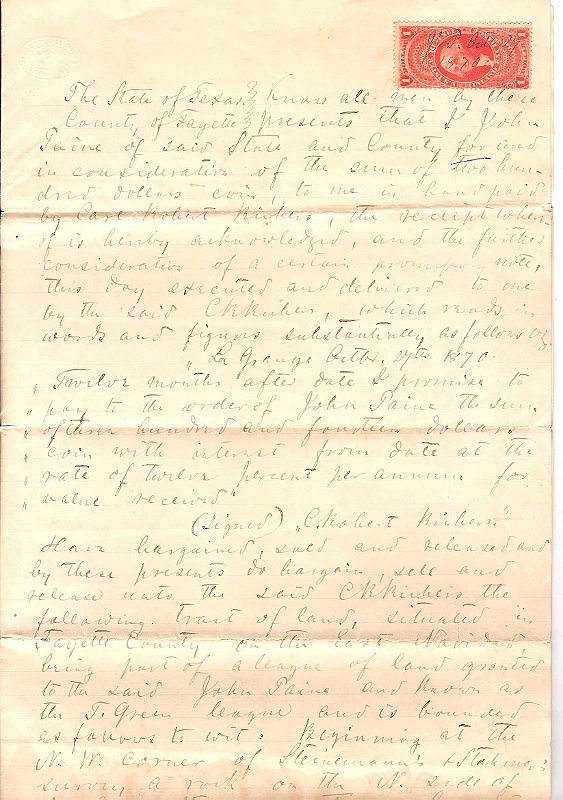 The State of Texas } Know all men by these
County of Fayette } presents that I John
Paine of said State and County for and
in consideration of the sum of two hun-
dred dollars coin, to me in hand paid
by Carl Robert Richers, the receipt where-
of is hereby acknowledged, and the further
consideration of a certain promissory note,
this day executed and delivered to me
by the said CRRichers, which reads in
words and figures substantially as follows viz
"La Grange Octbr. 27th 1870.
"Twelve months after date I promise to
"pay to the order of John Paine the sum
"of three hundred and fourteen dollars
"coin with interest from date at the
"rate of twelve percent per annum for
"value received"
(Signed) "C. Robert Richers."
Have bargained, sold and released and
by these presents do bargain, sell and
release unto the said CRRichers the
following tract of land, situated in
Fayette County on the East Navidad,
being part of a league of land granted
to the said John Paine and known as
the T. Green league and is bounded
as follows to wit: Beginning at the
N. W. Corner of Steinemann's &
survey a rock on the N. side of